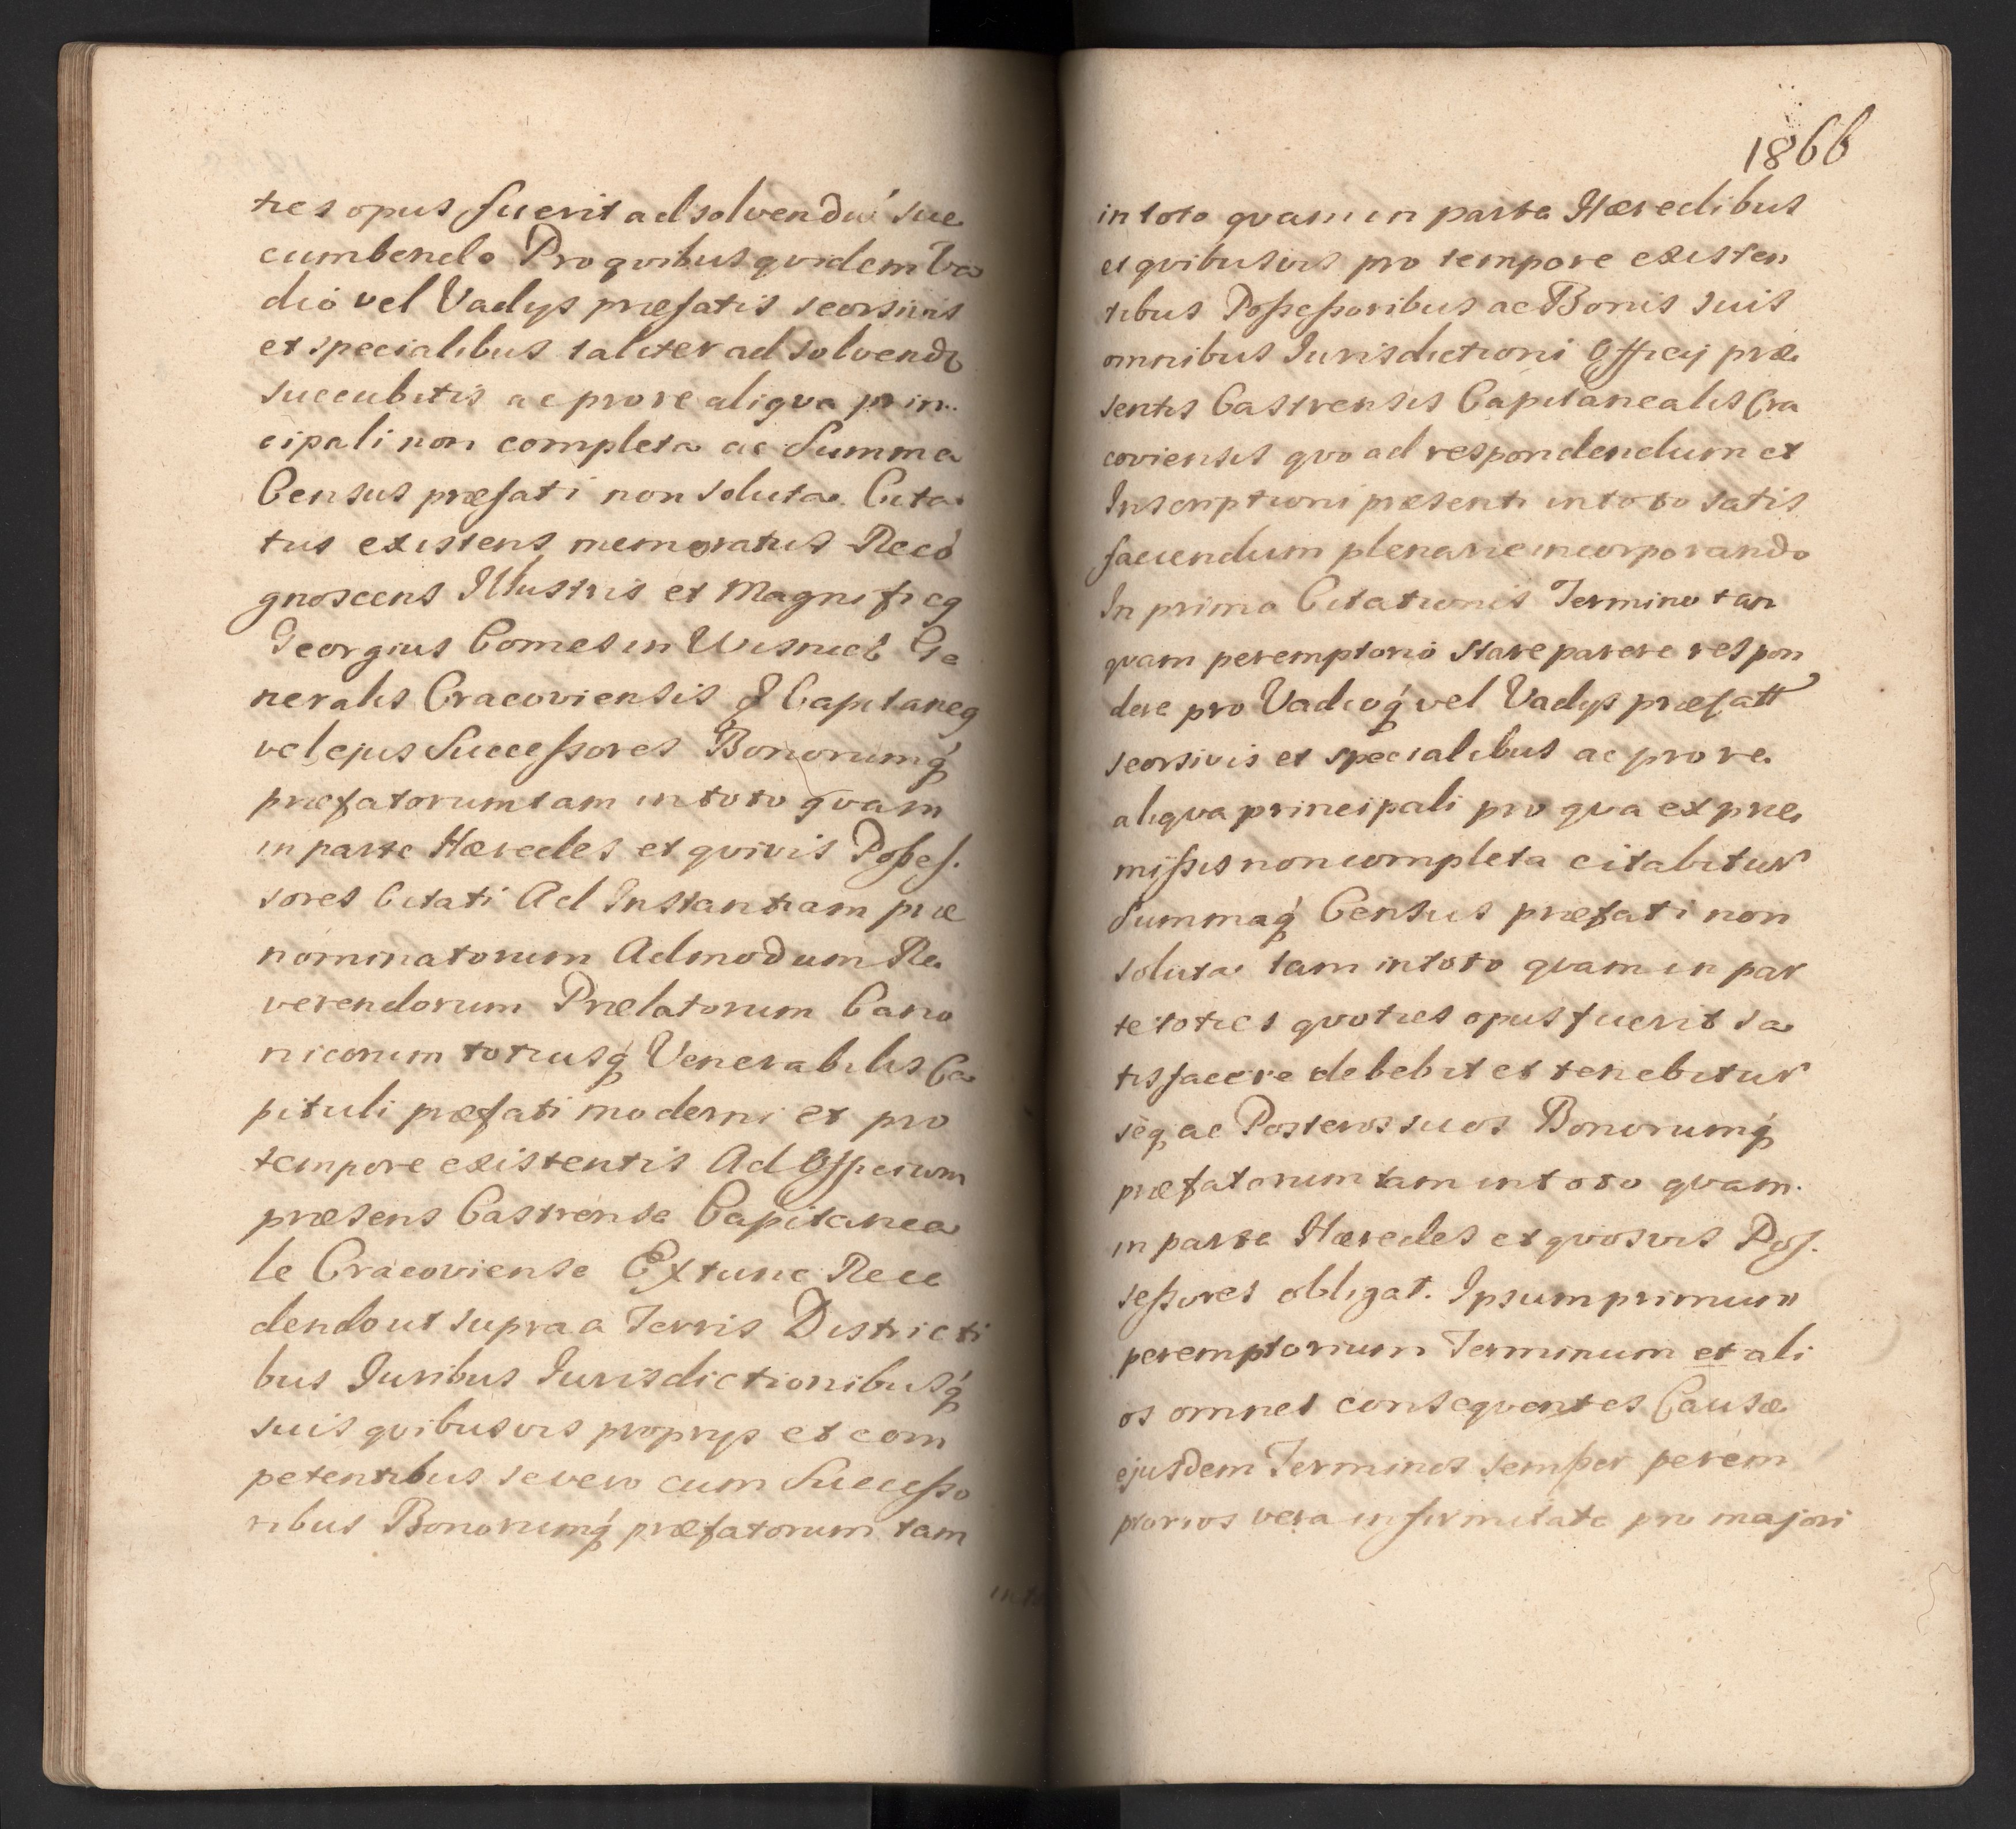 ties opus fuerit adsolvendũ suc
cumbendo Pro qvibus qvidem Va
dio vel Vadys præfatis seorsivis
et specialibus taliter adsolvend
succubitis ac pro re aliqva prin
cipali non completa ac Summa
Census præfati non soluta. Cita
tus existens memoratus Recó
gnoscens Illustris et Magnificq
Georgius Comes in Wisnicz Ge
neralis Cracoviensis & Capitaneq
vel ejus Successores Bonorumq́
præfatorum tam in toto qvam
in parte Hæredes et qvivis Posses.
sores Citati Ad Instantiam præ
nominatorum Admodum Re
verendorum Prælatorum Cano
nicorum totiusq́ Venerabilis Ca
pituli præfati moderni et pro
tempore existentis Ad Officium
præsens Castrense Capitanea
le Cracoviense Extunc Rece
dendo ut supra a Terris Districti
bus Juribus Jurisdictionibusq́
suis qvibusvis proprys et com
petentibus se vero cum Successo
ribus Bonorumq́ præfatorum tam
into
1866
in toto qvam in parte Hæredibus
et qvibusvis pro tempore existen
tibus Possessoribus ac Bonis suis
omnibus Jurisdictioni Officij præ
sentis Castrensis Capitanealis Cra
coviensis qvo ad respondendum et
Inscriptioni præsenti in toto satis
faciendum plenarie incorporando
In primo Citationis Termino tan
qvam peremptorió stare parere respon
dere pro Vadioq́ vel Vadys præfatt
seorsivis et specialibus ac pro re
aliqva principali pro qva ex præ
missis non completa citabitur
Summaq́ Census præfati non
soluta tam in toto qvam in par
te toties qvoties opus fuerit sa
tisfacere debebit et tenebitur
seq ac Posteros suos Bonorumq́
præfatorum tam in toto qvam
in parte Hæredes et qvosvis Pos.
sessores obligat. Ipsum primum
peremptorium Terminum et ali
os omnes conseqventes Causæ
ejusdem Terminos semper perem
ptorios vera infirmitate pro majori